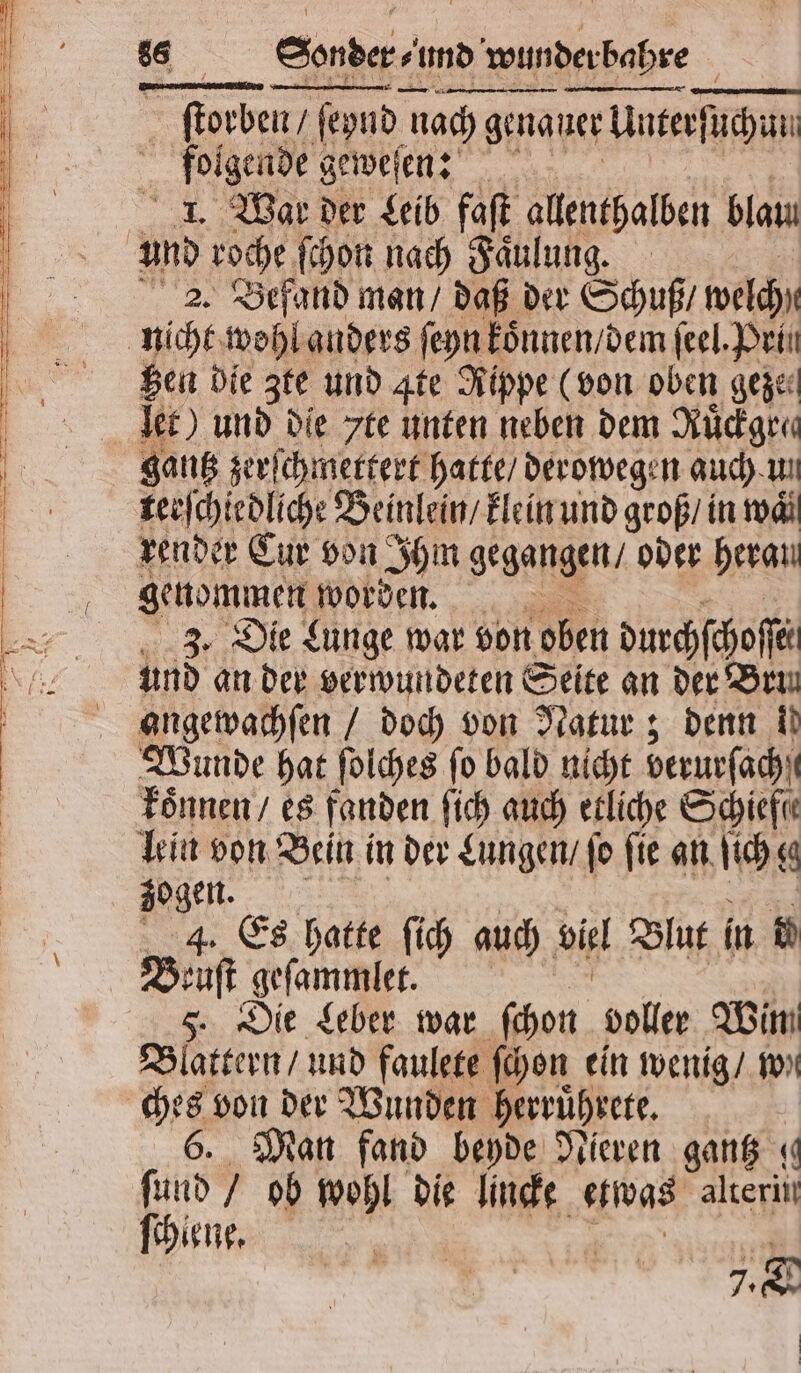 86 Sonder⸗und wunderbahre
ſtorben / ſeynd nach genauer Unterſuchun
folgende geweſen:
1. War der Leib faſt allenthalben blau
und roche ſchon nach Faͤulung.
2. Befand man / daß der Schuß / welch
nicht wohl anders ſeyn koͤnnen / dem ſeel. Prin
tzen die 3te und 4te Rippe (von oben geze
let) und die 7te unten neben dem Ruͤckgra
gantz zerſchmettert hatte / derowegen auch un
terſchiedliche Beinlein / klein und groß / in waͤ
render Cur von Ihm gegangen / oder herau
genommen worden.
3. Die Lunge war von oben durchſchoſſe
und an der verwundeten Seite an der Bru
angewachſen / doch von Natur ; denn d
Wunde hat ſolches ſo bald nicht verurſach
koͤnnen / es fanden ſich auch etliche Schiefe
lein von Bein in der Lungen / ſo ſie an ſich g
zogen.
4. Es hatte ſich auch viel Blut in d
Bruſt geſammlet.
5. Die Leber war ſchon voller Win
Blattern / und faulete ſchon ein wenig / w
ches von der Wunden herruͤhrete.
6. Man fand beyde Nieren gantz g
ſund / ob wohl die lincke etwas alterir
ſchiene.
7. D